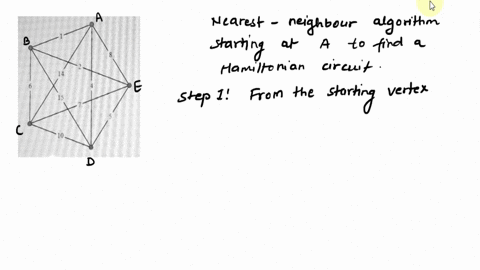 Nearest - neighbour algorithm
starting at A to find a
Hamiltonian circuit.
Step 1! From the starting vertex
A
B
1
8
14
2
E
6
4
15
7
5
C
10
D